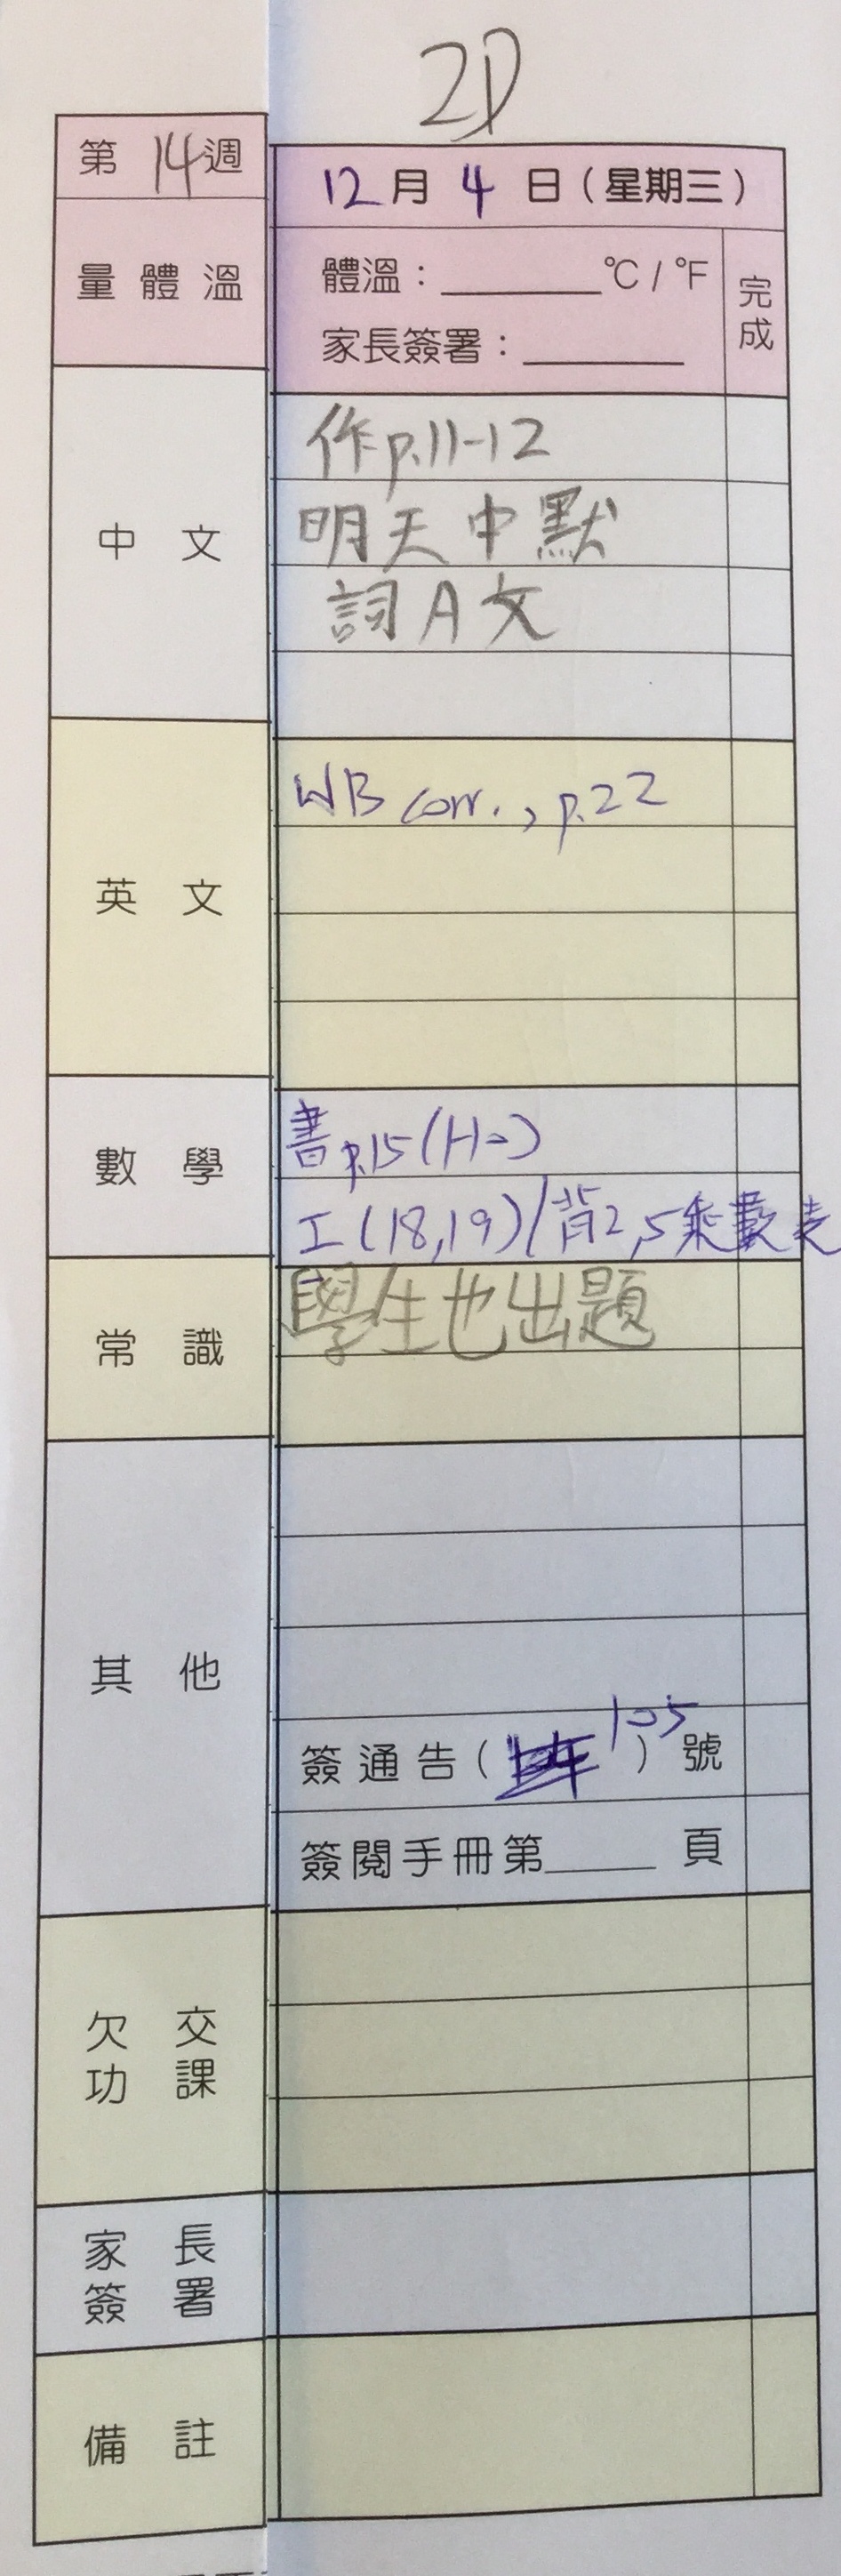 2D
第 14 週
12 月 4 日（星期三）
量體溫
體溫：______°C / °F
完成
家長簽署：______
中文
作p.11-12
明天中默
詞A文
英文
WB corr., p.22
數學
書p.15(H=)
工(18,19)/背2,5乘數表
常識
學生也出題
其他
簽通告( ) 105 號
簽閱手冊第____頁
欠交功課
家長簽署
備註